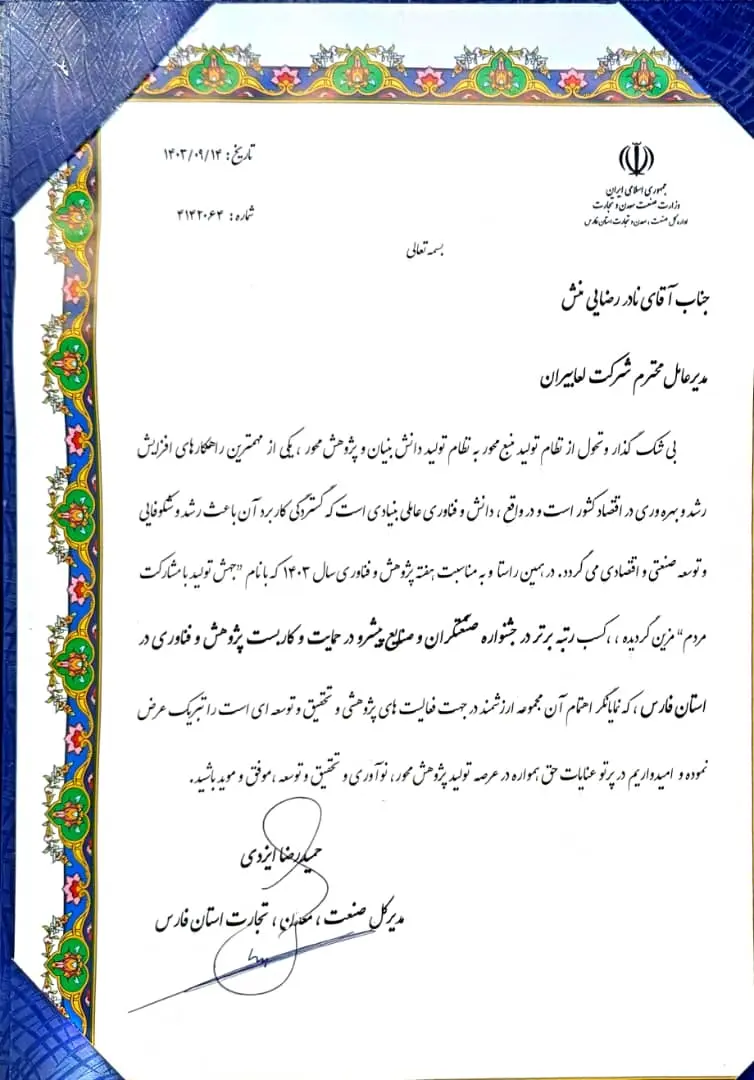 جمهوری اسلامی ایران
وزارت صنعت معدن و تجارت
اداره کل صنعت ، معدن و تجارت استان فارس
تاریخ: ۱۴۰۳/۰۹/۱۴
شماره: ۴۱۴۲۰۶۴
بسمه تعالی
جناب آقای نادر رضایی منش
مدیرعامل محترم شرکت لعابیران
بی شک گذار و تحول از نظام تولید منبع محور به نظام تولید دانش بنیان و پژوهش محور ، یکی از مهمترین راهکارهای افزایش
رشد و بهره وری در اقتصاد کشور است و در واقع ، دانش و فناوری عاملی بنیادی است که گستردگی کاربرد آن باعث رشد و شکوفایی
و توسعه صنعتی و اقتصادی می گردد. در همین راستا و به مناسبت هفته پژوهش و فناوری سال ۱۴۰۳ که با نام "جهش تولید با مشارکت
مردم" مزین گردیده ، ،کسب رتبه برتر در جشنواره صنعتگران و صنایع پیشرو در حمایت و کاربست پژوهش و فناوری در
استان فارس ، که نمایانگر اهتمام آن مجموعه ارزشمند در جهت فعالیت های پژوهشی و تحقیق و توسعه ای است را تبریک عرض
نموده و امیدواریم در پرتو عنایات حق همواره در عرصه تولید پژوهش محور ، نوآوری و تحقیق و توسعه ،موفق و موید باشید.
حمیدرضا ایزدی
مدیرکل صنعت ، معدن ، تجارت استان فارس